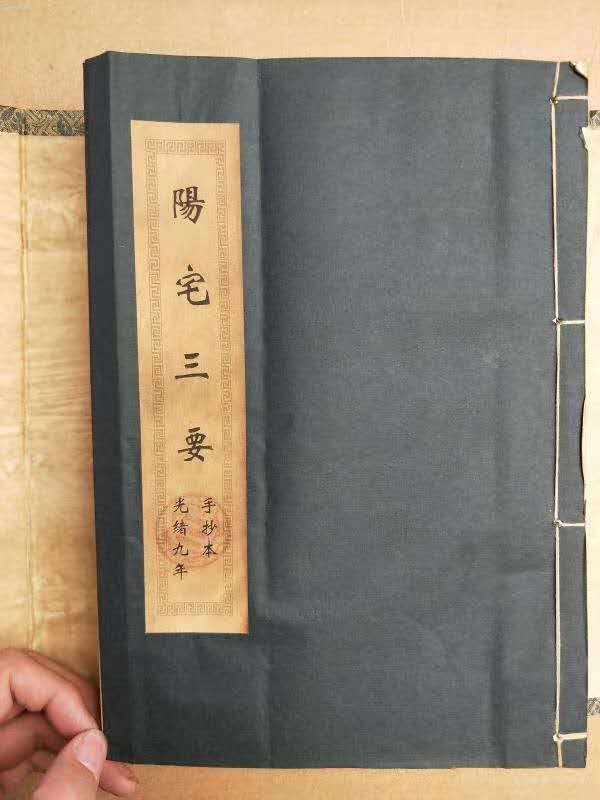 陽宅三要
手抄本
光緒九年